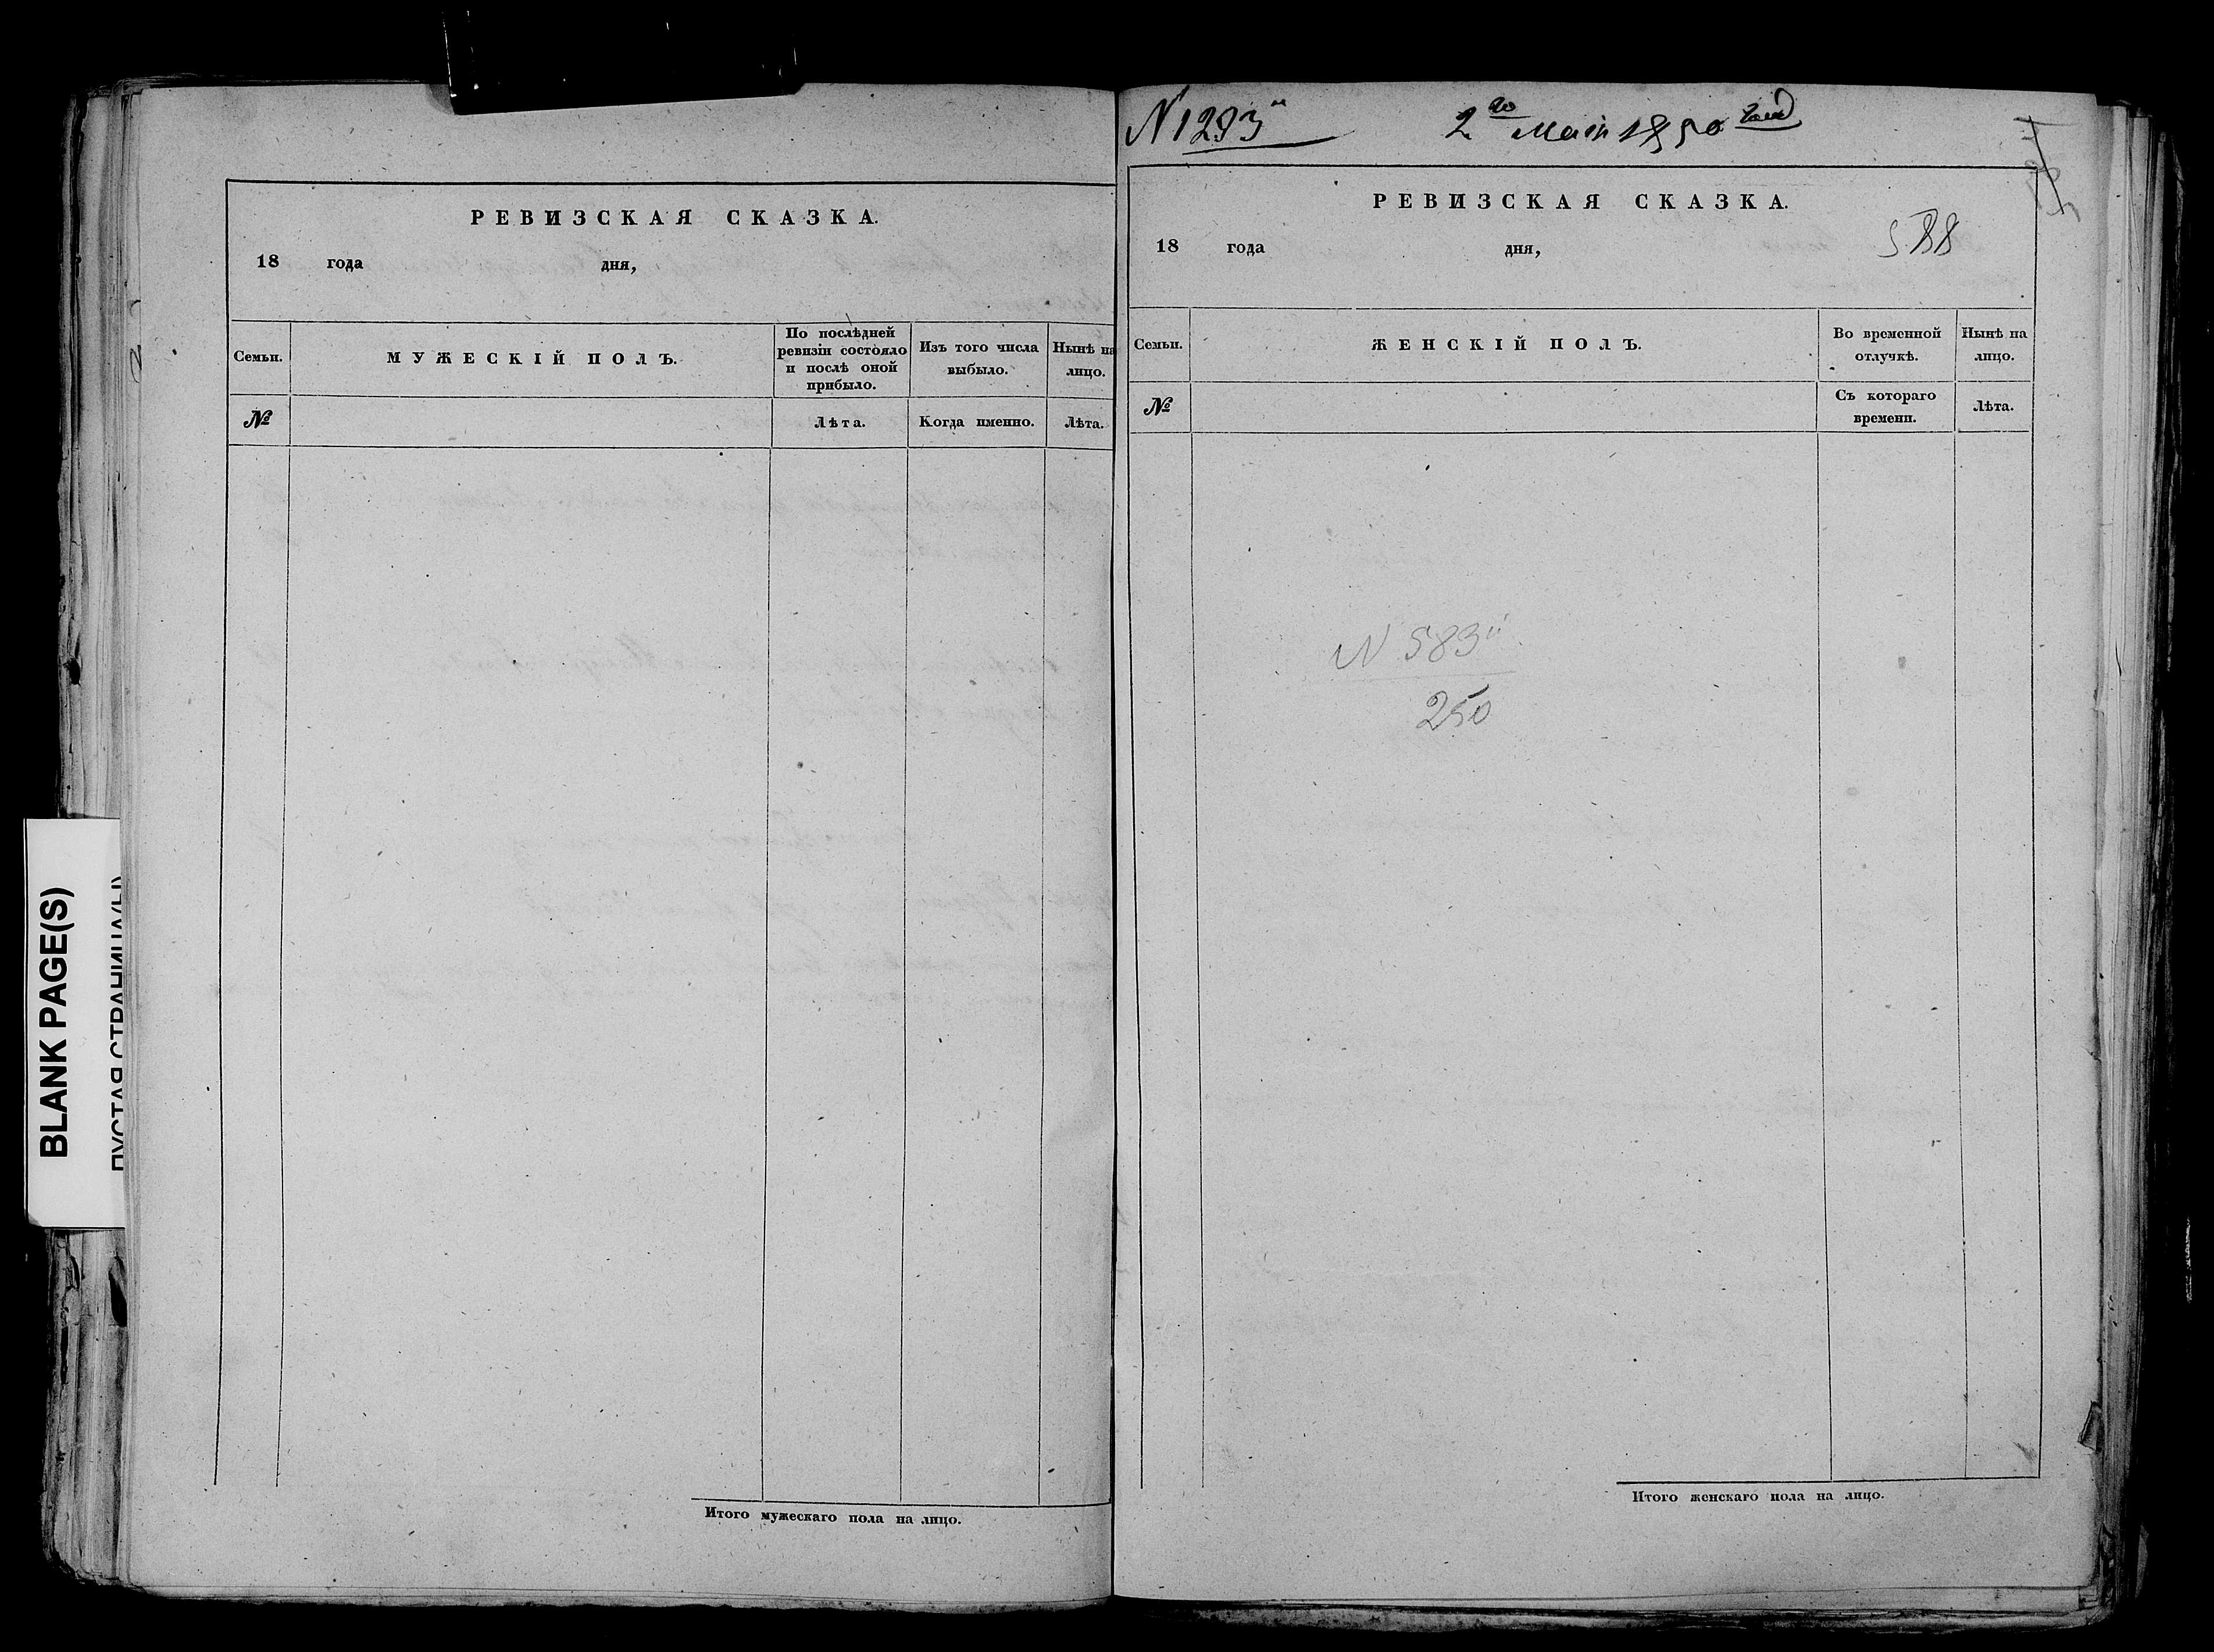 BLANK PAGE(S)
ПУСТАЯ СТРАНИЦА(Ы)
РЕВИЗСКАЯ СКАЗКА.
18 года дня,
Семьи.
МУЖЕСКІЙ ПОЛЪ.
По послѣдней
ревизіи состояло
и послѣ оной
прибыло.
Изъ того числа
выбыло.
Нынѣ на
лицо.
№
Лѣта.
Когда именно.
Лѣта.
Итого мужескаго пола на лицо.
N 1293й
2го Маія 1850 года
РЕВИЗСКАЯ СКАЗКА.
588
18 года дня,
Семьи.
ЖЕНСКІЙ ПОЛЪ.
Во временной
отлучкѣ.
Нынѣ на
лицо.
№
Съ котораго
времени.
Лѣта.
N 583й
250
Итого женскаго пола на лицо.